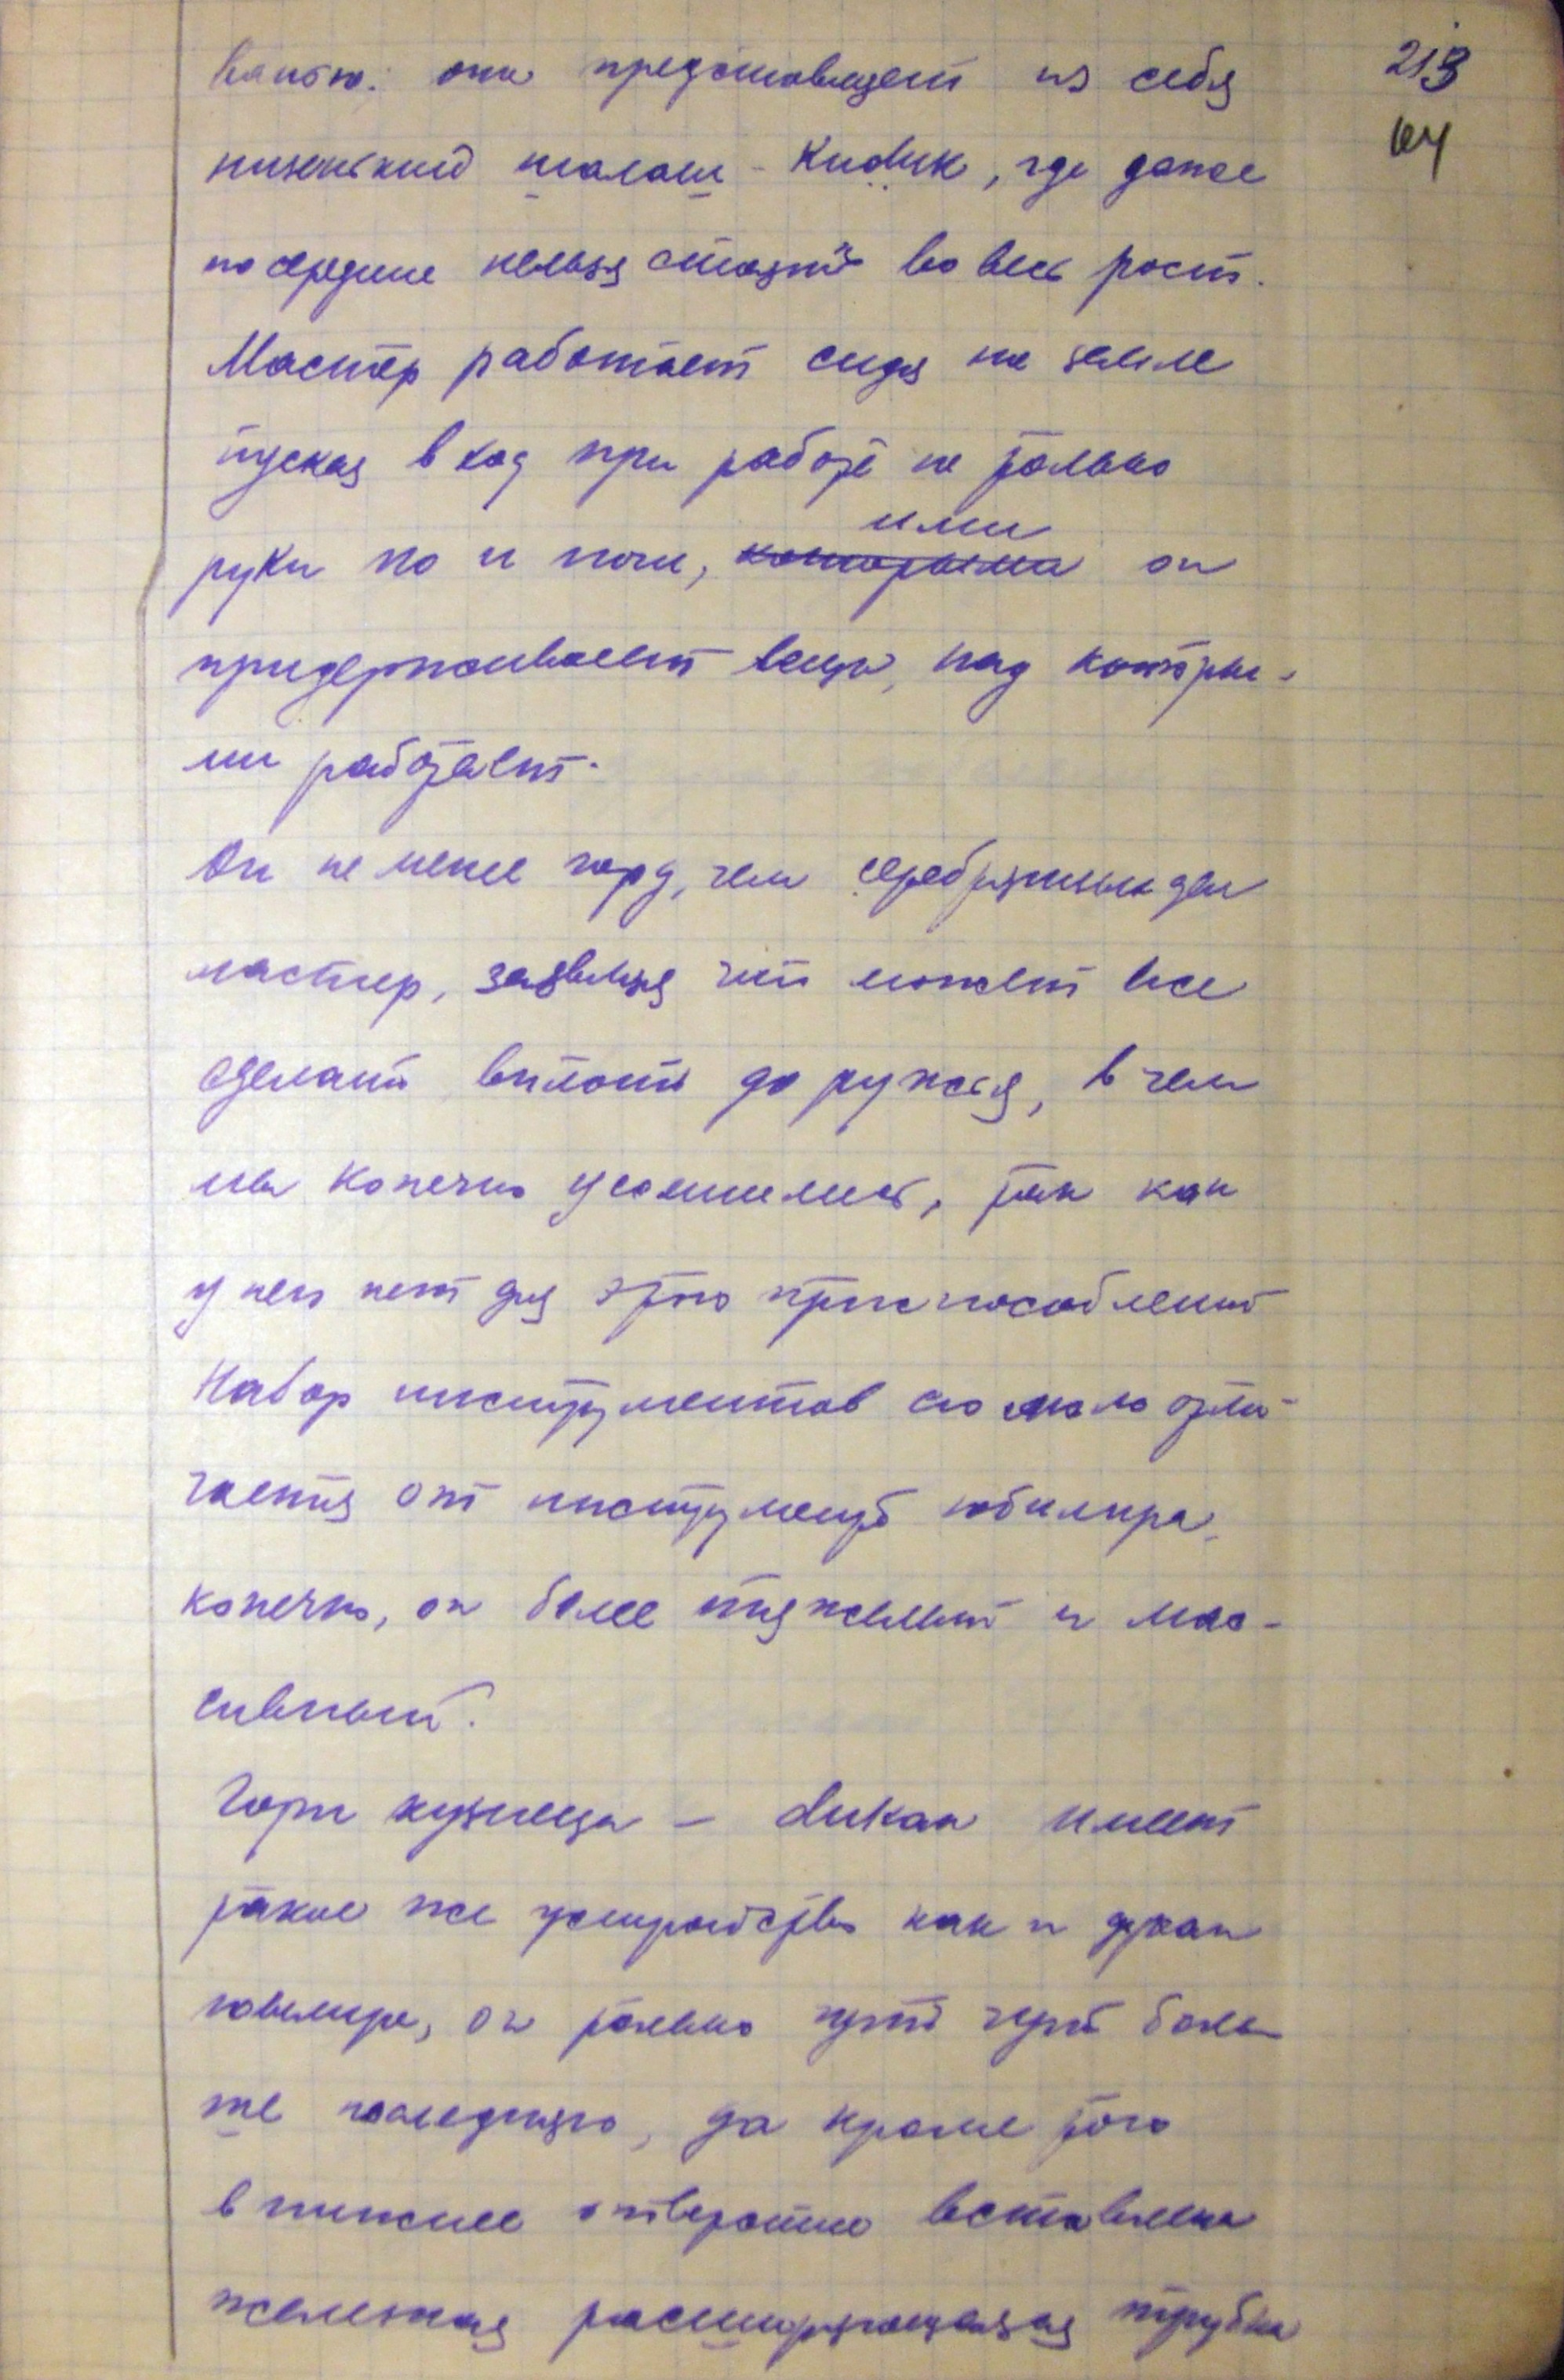 213
64
она представляет из себя
низенький шалаш - Кидик, где даже
по середине нельзя стоять во весь рост.
Мастер работает сидя на земле
пуская в ход при работе не только
ими
руки но и ноги, которыма он
придерживает вещи, над которы-
ми работает.
Он не менее горд, чем серебряных дел
мастер, заявляя что может все
сделать вплоть до ружья, в чем
мы конечно усомнились, так как
у него нет для этого приспособлений
Набор инструментов его мало отли-
чается от инструмента ювилира,
конечно, он более тяжелый и мас-
сивный.
Горн кузнеца - дикан имеет
такое же устройство как и дукан
ювелира, он только чуть чуть боль
ше последнего, да кроме того
в нижнее отверстие вставлена
железная расширяющаяся трубка